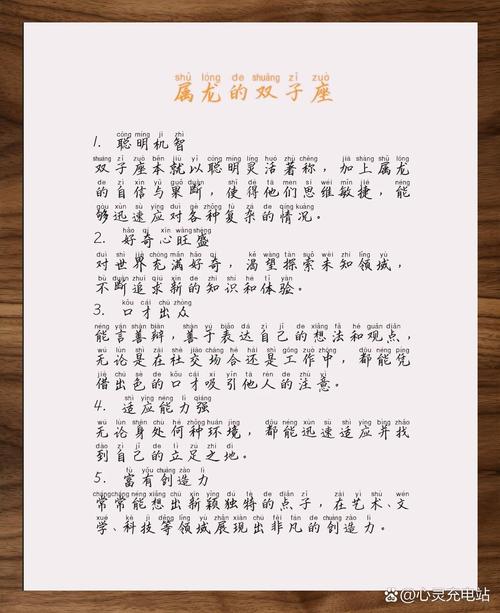 shǔ lóng de shuāng zǐ zuò
属龙的双子座
cōng míng jī zhì
1. 聪明机智
shuāng zǐ zuò běn jiù yǐ cōng míng líng huó zhù chēng jiā shàng shǔ lóng
双子座本就以聪明灵活著称，加上属龙
de zì xìn yǔ guǒ duàn shǐ dé tā men sī wéi mǐn jié néng
的自信与果断，使得他们思维敏捷，能
gòu xùn sù yìng duì gè zhǒng fù zá de qíng kuàng
够迅速应对各种复杂的情况。
hào qí xīn wàng shèng
2. 好奇心旺盛
duì shì jiè chōng mǎn hào qí kě wàng tàn suǒ wèi zhī lǐng yù
对世界充满好奇，渴望探索未知领域，
bù duàn zhuī qiú xīn de zhī shi hé tǐ yàn
不断追求新的知识和体验。
kǒu cái chū zhòng
3. 口才出众
néng yán shàn biàn shàn yú biǎo dá zì jǐ de xiǎng fǎ hé guān diǎn
能言善辩，善于表达自己的想法和观点，
wú lùn shì zài shè jiāo chǎng hé hái shì gōng zuò zhōng dōu néng píng
无论是在社交场合还是工作中，都能凭
jiè chū sè de kǒu cái xī yǐn tā rén de zhù yì
借出色的口才吸引他人的注意。
shì yìng néng lì qiáng
4. 适应能力强
wú lùn shēn chǔ hé zhǒng huán jìng dōu néng xùn sù shì yìng bìng zhǎo
无论身处何种环境，都能迅速适应并找
dào zì jǐ de lì zú zhī dì
到自己的立足之地。
fù yǒu chuàng zào lì
5. 富有创造力
cháng cháng néng xiǎng chū xīn yǐng dú tè de diǎn zi zài yì shù wén
常常能想出新颖独特的点子，在艺术、文
xué kē jì děng lǐng yù zhǎn xiàn chū fēi fán de chuàng zào lì
学、科技等领域展现出非凡的创造力。
心灵充电站